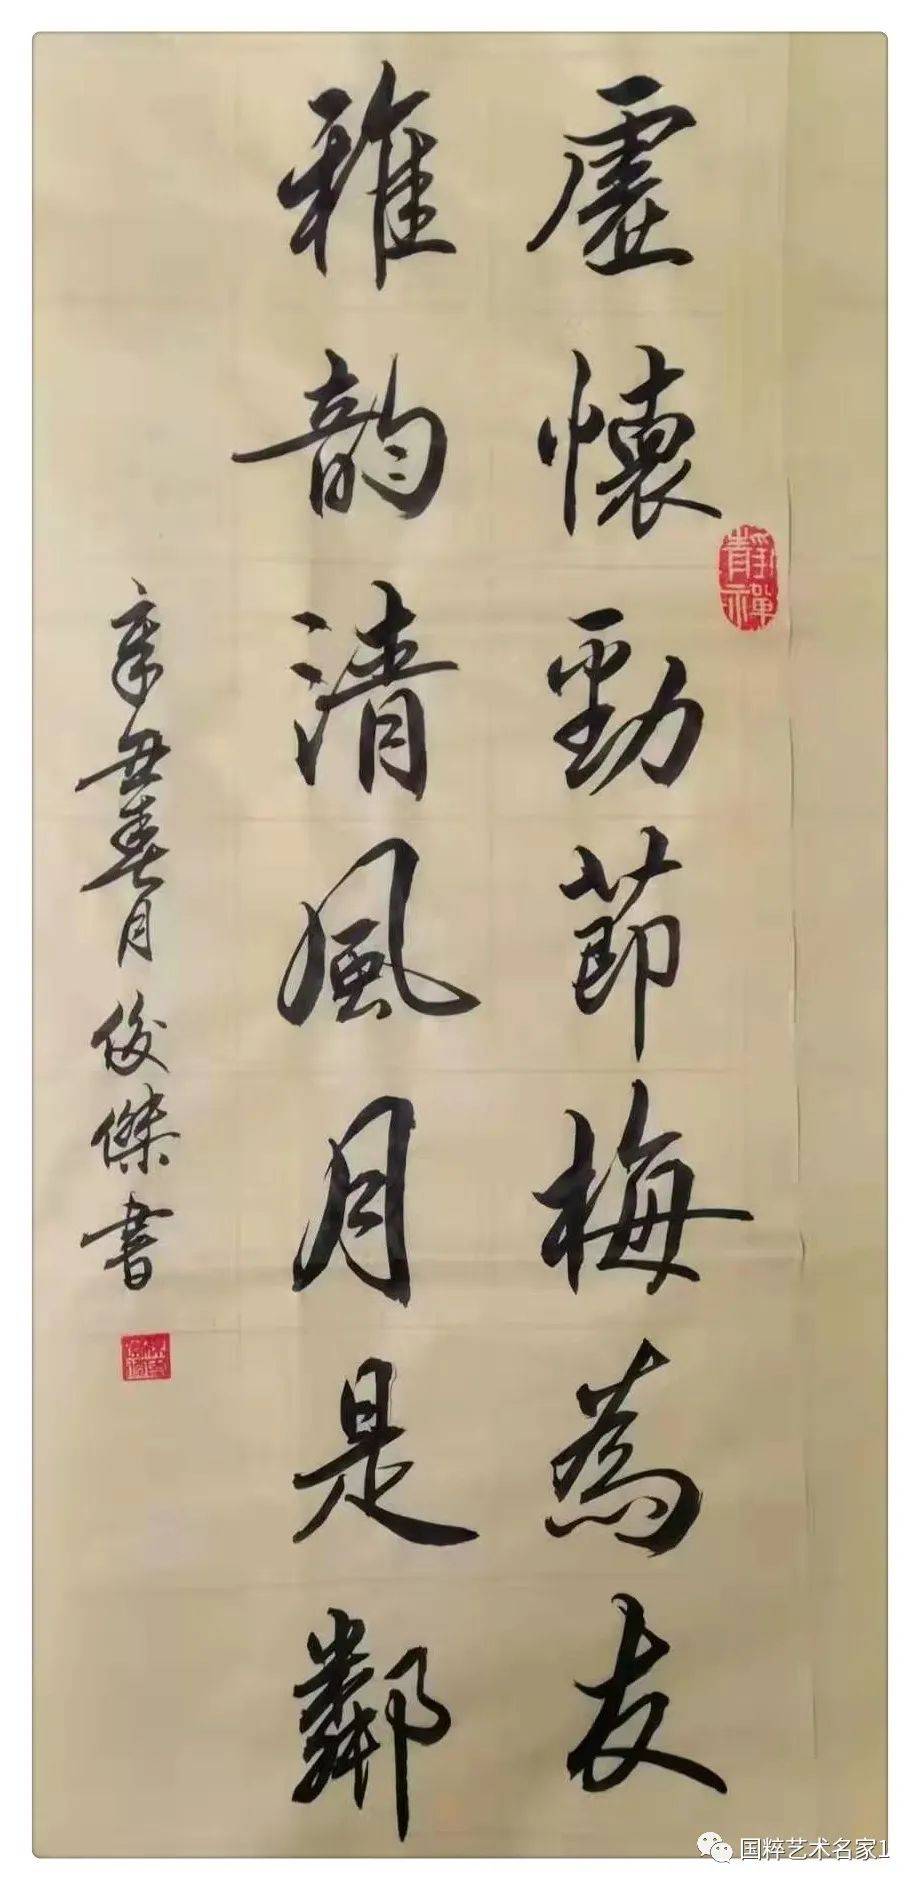 虛懷勁節梅為友
雅韵清風月是鄰
辛丑春月俊傑書
靜禪
国粹艺术名家1